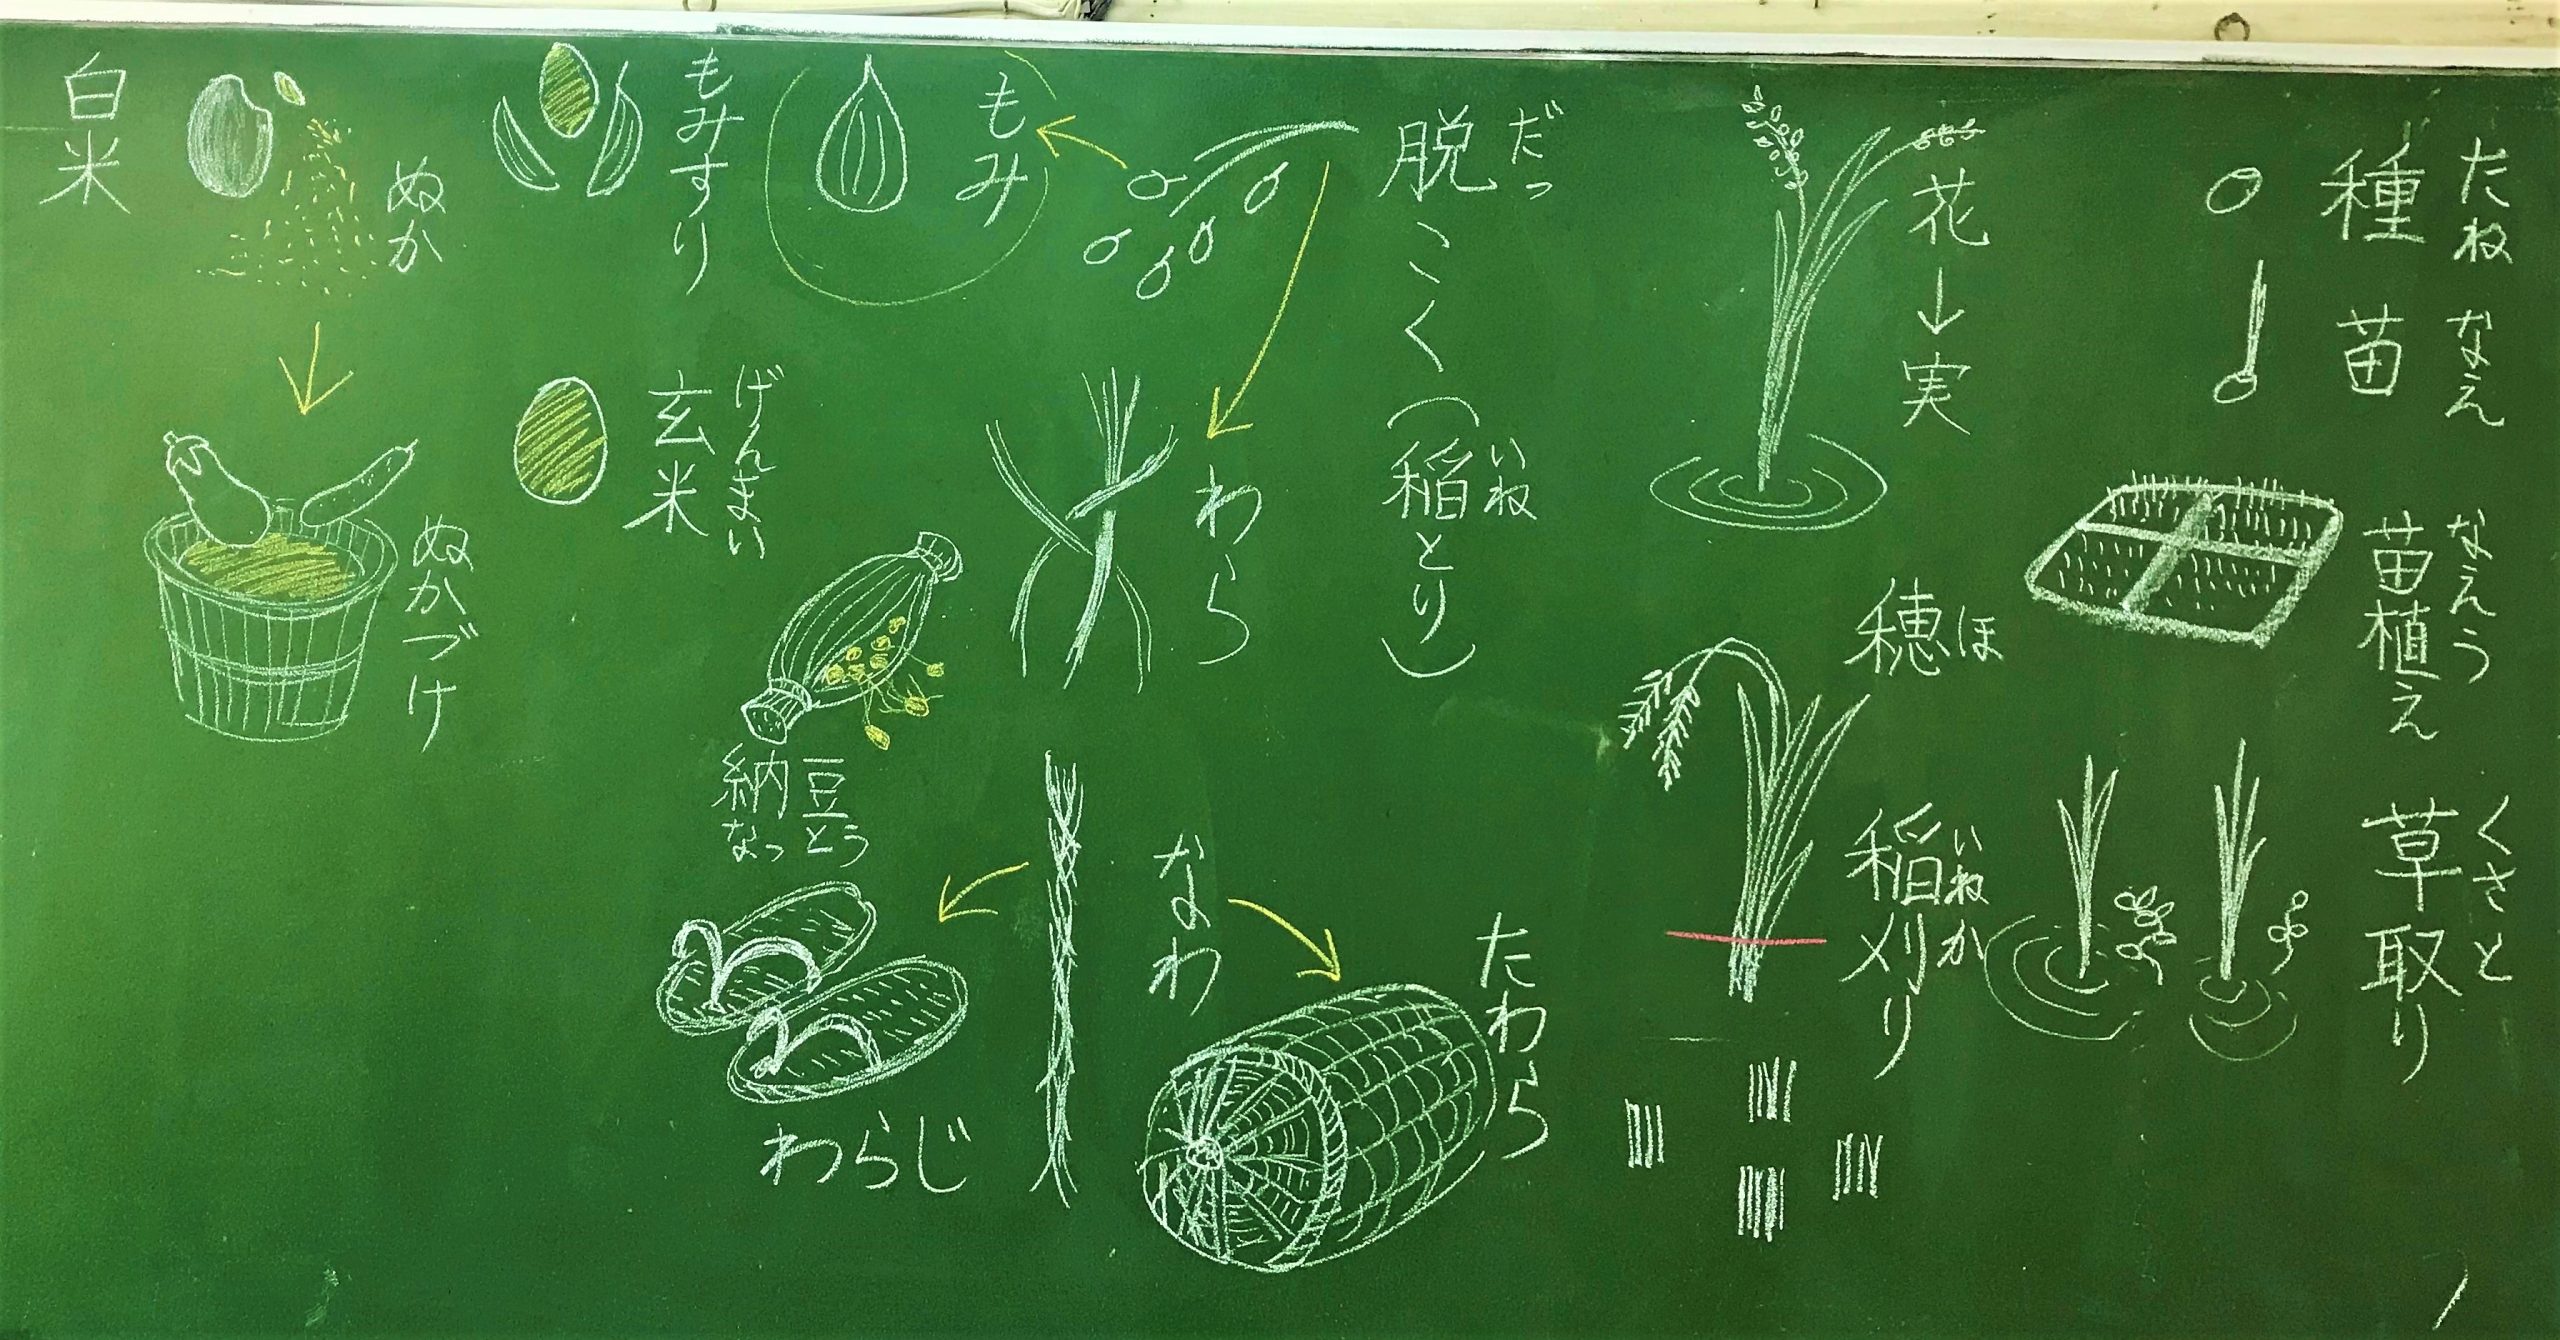 たね
種
なえ
苗
なえう
苗植え
くさと
草取り
花→実
ほ
穂
いねか
稲刈り
だっ
脱こく(稲とり)
いね
もみ
わら
なわ
たわら
わらじ
納豆
なっとう
もみすり
げんまい
玄米
ぬか
ぬかづけ
白米